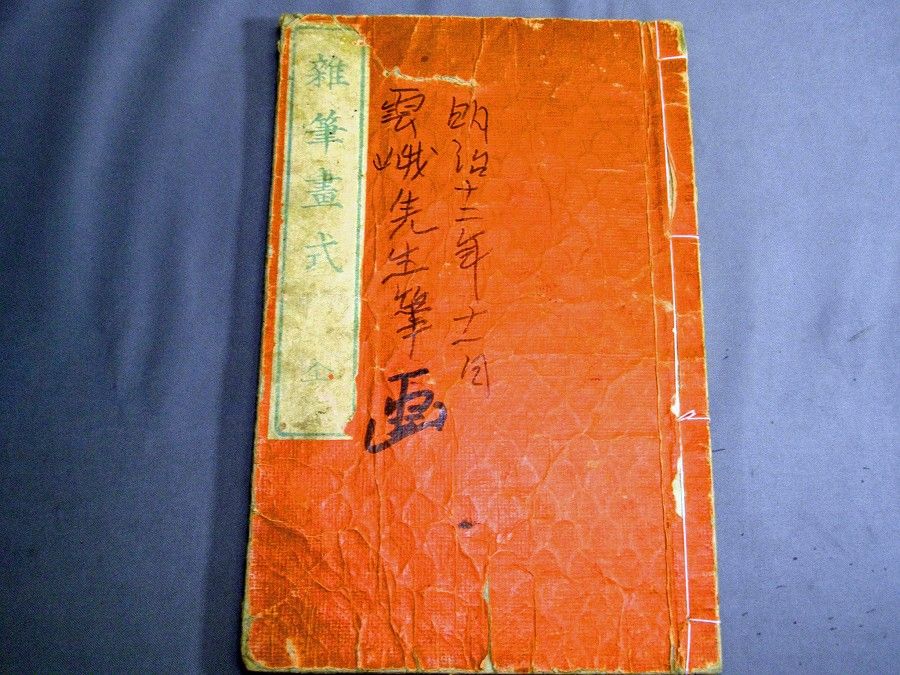 明治十二年十一月
雲峨先生筆画
雜筆畫式 全